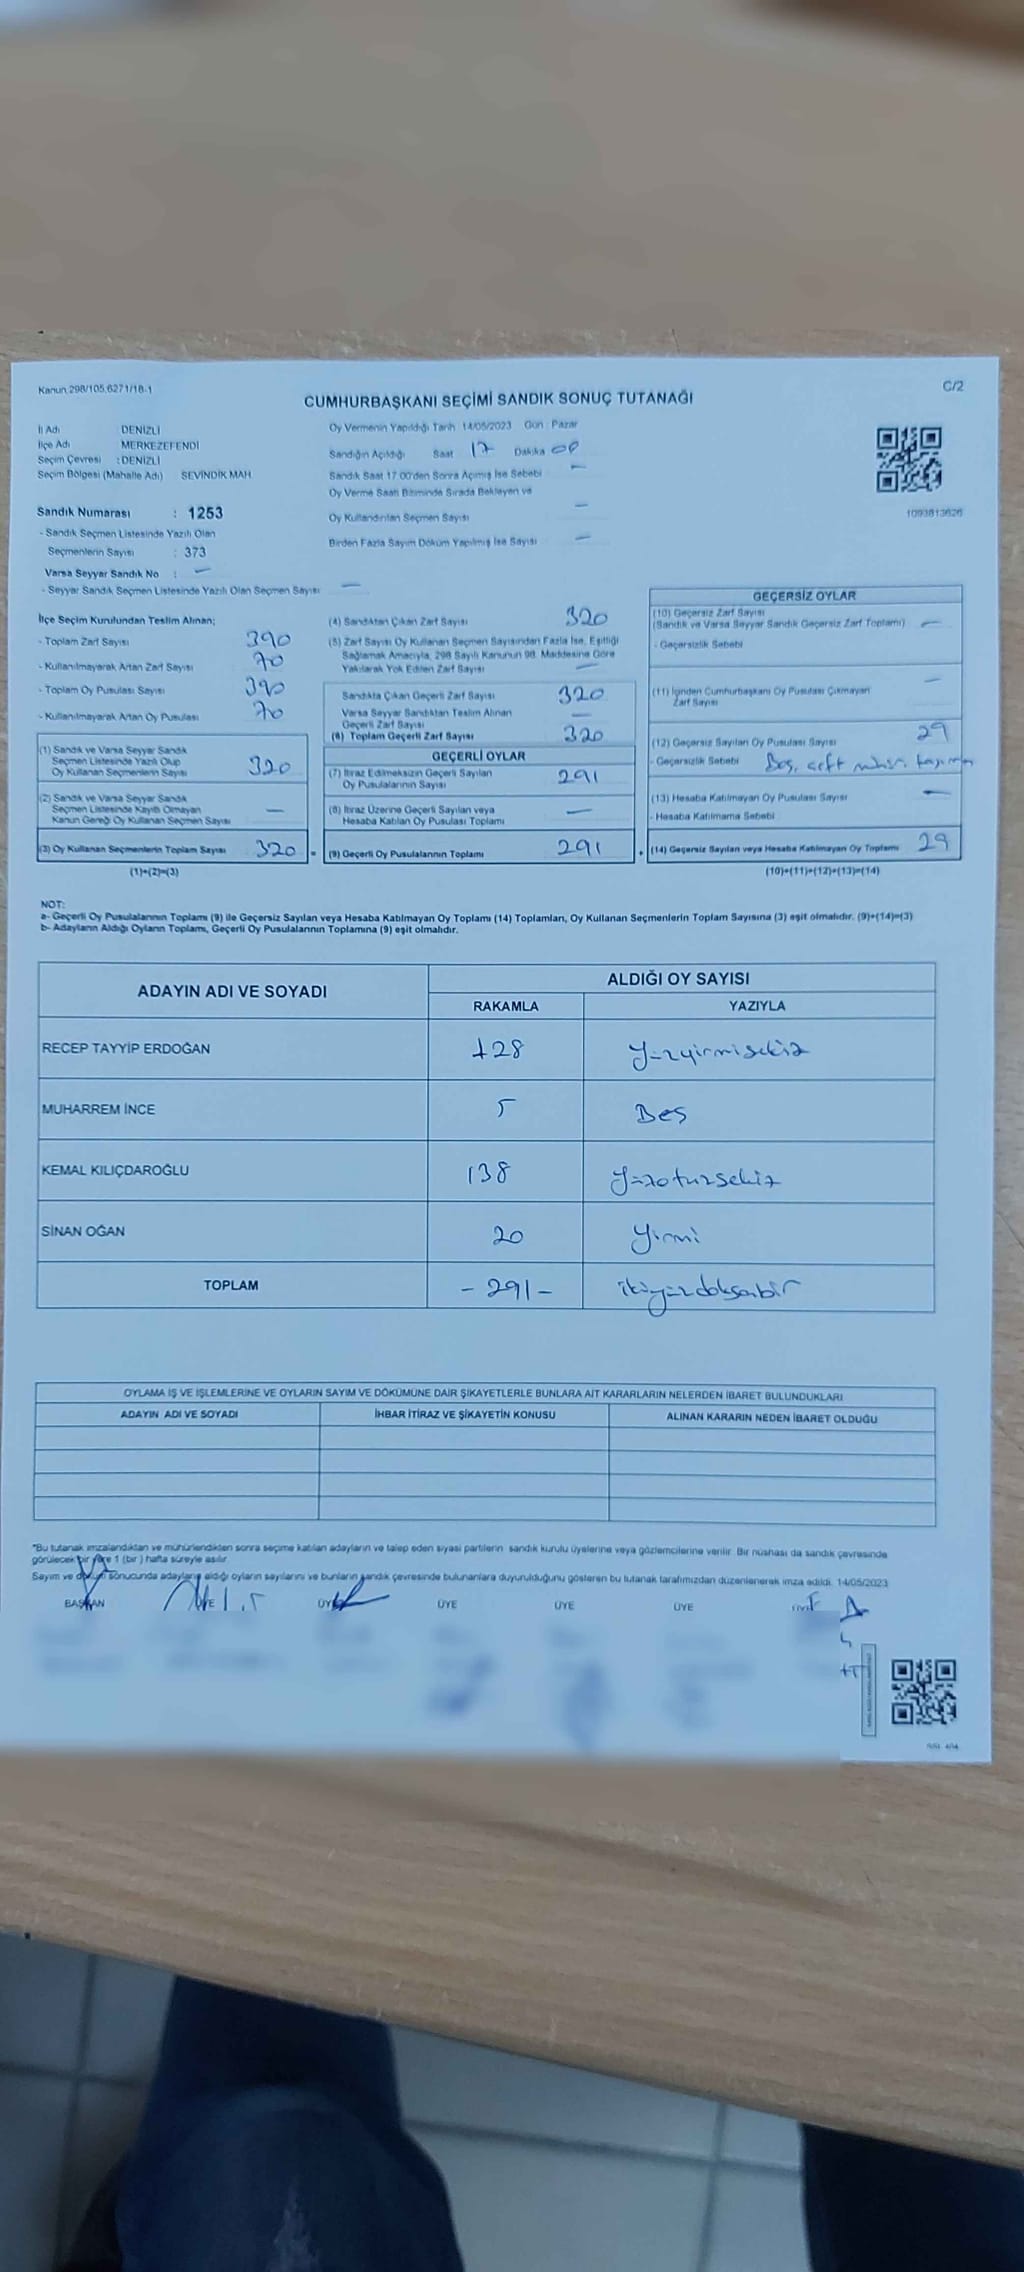 Kanun 298/105,6271/18-1
C/2
CUMHURBAŞKANI SEÇİMİ SANDIK SONUÇ TUTANAĞI
İl Adı : DENİZLİ
İlçe Adı : MERKEZEFENDİ
Seçim Çevresi : DENİZLİ
Seçim Bölgesi (Mahalle Adı) SEVİNDİK MAH
Sandık Numarası : 1253
- Sandık Seçmen Listesinde Yazılı Olan
Seçmenlerin Sayısı : 373
Varsa Seyyar Sandık No : —
- Seyyar Sandık Seçmen Listesinde Yazılı Olan Seçmen Sayısı —
Oy Vermenin Yapıldığı Tarih 14/05/2023 Gün : Pazar
Sandığın Açıldığı Saat 17 Dakika 00
Sandık Saat 17.00'den Sonra Açımış İse Sebebi —
Oy Verme Saati Bitiminde Sırada Bekleyen ve
Oy Kullandırılan Seçmen Sayısı —
Birden Fazla Sayım Döküm Yapılmış İse Sayısı —
1093813626
İlçe Seçim Kurulundan Teslim Alınan;
- Toplam Zarf Sayısı 390
- Kullanılmayarak Artan Zarf Sayısı 70
- Toplam Oy Pusulası Sayısı 390
- Kullanılmayarak Artan Oy Pusulası 70
(1) Sandık ve Varsa Seyyar Sandık
Seçmen Listesinde Yazılı Olup
Oy Kullanan Seçmenlerin Sayısı 320
(2) Sandık ve Varsa Seyyar Sandık
Seçmen Listesinde Kayıtlı Olmayan
Kanun Gereği Oy Kullanan Seçmen Sayısı —
(3) Oy Kullanan Seçmenlerin Toplam Sayısı 320 =
(1)+(2)=(3)
(4) Sandıktan Çıkan Zarf Sayısı 320
(5) Zarf Sayısı Oy Kullanan Seçmen Sayısından Fazla İse, Eşitliği
Sağlamak Amacıyla, 298 Sayılı Kanunun 98. Maddesine Göre
Yakılarak Yok Edilen Zarf Sayısı —
Sandıkta Çıkan Geçerli Zarf Sayısı 320
Varsa Seyyar Sandıktan Teslim Alınan
Geçerli Zarf Sayısı —
(6) Toplam Geçerli Zarf Sayısı 320
GEÇERLİ OYLAR
(7) İtiraz Edilmeksizin Geçerli Sayılan
Oy Pusulalarının Sayısı 291
(8) İtiraz Üzerine Geçerli Sayılan veya
Hesaba Katılan Oy Pusulası Toplamı —
(9) Geçerli Oy Pusulalarının Toplamı 291 +
GEÇERSİZ OYLAR
(10) Geçersiz Zarf Sayısı
(Sandık ve Varsa Seyyar Sandık Geçersiz Zarf Toplamı) —
- Geçersizlik Sebebi
(11) İçinden Cumhurbaşkanı Oy Pusulası Çıkmayan —
Zarf Sayısı
(12) Geçersiz Sayılan Oy Pusulası Sayısı 29
- Geçersizlik Sebebi Boş, çift mühür,
(13) Hesaba Katılmayan Oy Pusulası Sayısı —
- Hesaba Katılmama Sebebi
(14) Geçersiz Sayılan veya Hesaba Katılmayan Oy Toplamı 29
(10)+(11)+(12)+(13)=(14)
NOT:
a- Geçerli Oy Pusulalarının Toplamı (9) ile Geçersiz Sayılan veya Hesaba Katılmayan Oy Toplamı (14) Toplamları, Oy Kullanan Seçmenlerin Toplam Sayısına (3) eşit olmalıdır. (9)+(14)=(3)
b- Adayların Aldığı Oyların Toplamı, Geçerli Oy Pusulalarının Toplamına (9) eşit olmalıdır.
ADAYIN ADI VE SOYADI ALDIĞI OY SAYISI
RAKAMLA YAZIYLA
RECEP TAYYİP ERDOĞAN 128 Yüzyirmisekiz
MUHARREM İNCE 5 Beş
KEMAL KILIÇDAROĞLU 138 Yüzotuzsekiz
SİNAN OĞAN 20 Yirmi
TOPLAM - 291 - ikiyüzdoksanbir
OYLAMA İŞ VE İŞLEMLERİNE VE OYLARIN SAYIM VE DÖKÜMÜNE DAİR ŞİKAYETLERLE BUNLARA AİT KARARLARIN NELERDEN İBARET BULUNDUKLARI
ADAYIN ADI VE SOYADI İHBAR İTİRAZ VE ŞİKAYETİN KONUSU ALINAN KARARIN NEDEN İBARET OLDUĞU
"Bu tutanak imzalandıktan ve mühürlendikten sonra seçime katılan adayların ve talep eden siyasi partilerin sandık kurulu üyelerine veya gözlemcilerine verilir. Bir nüshası da sandık çevresinde
görülecek bir yere 1 (bir ) hafta süreyle asılır.
Sayım ve döküm sonucunda adayların aldığı oyların sayılarını ve bunların sandık çevresinde bulunanlara duyurulduğunu gösteren bu tutanak tarafımızdan düzenlenerek imza edildi. 14/05/2023
BAŞKAN ÜYE ÜYE ÜYE ÜYE ÜYE